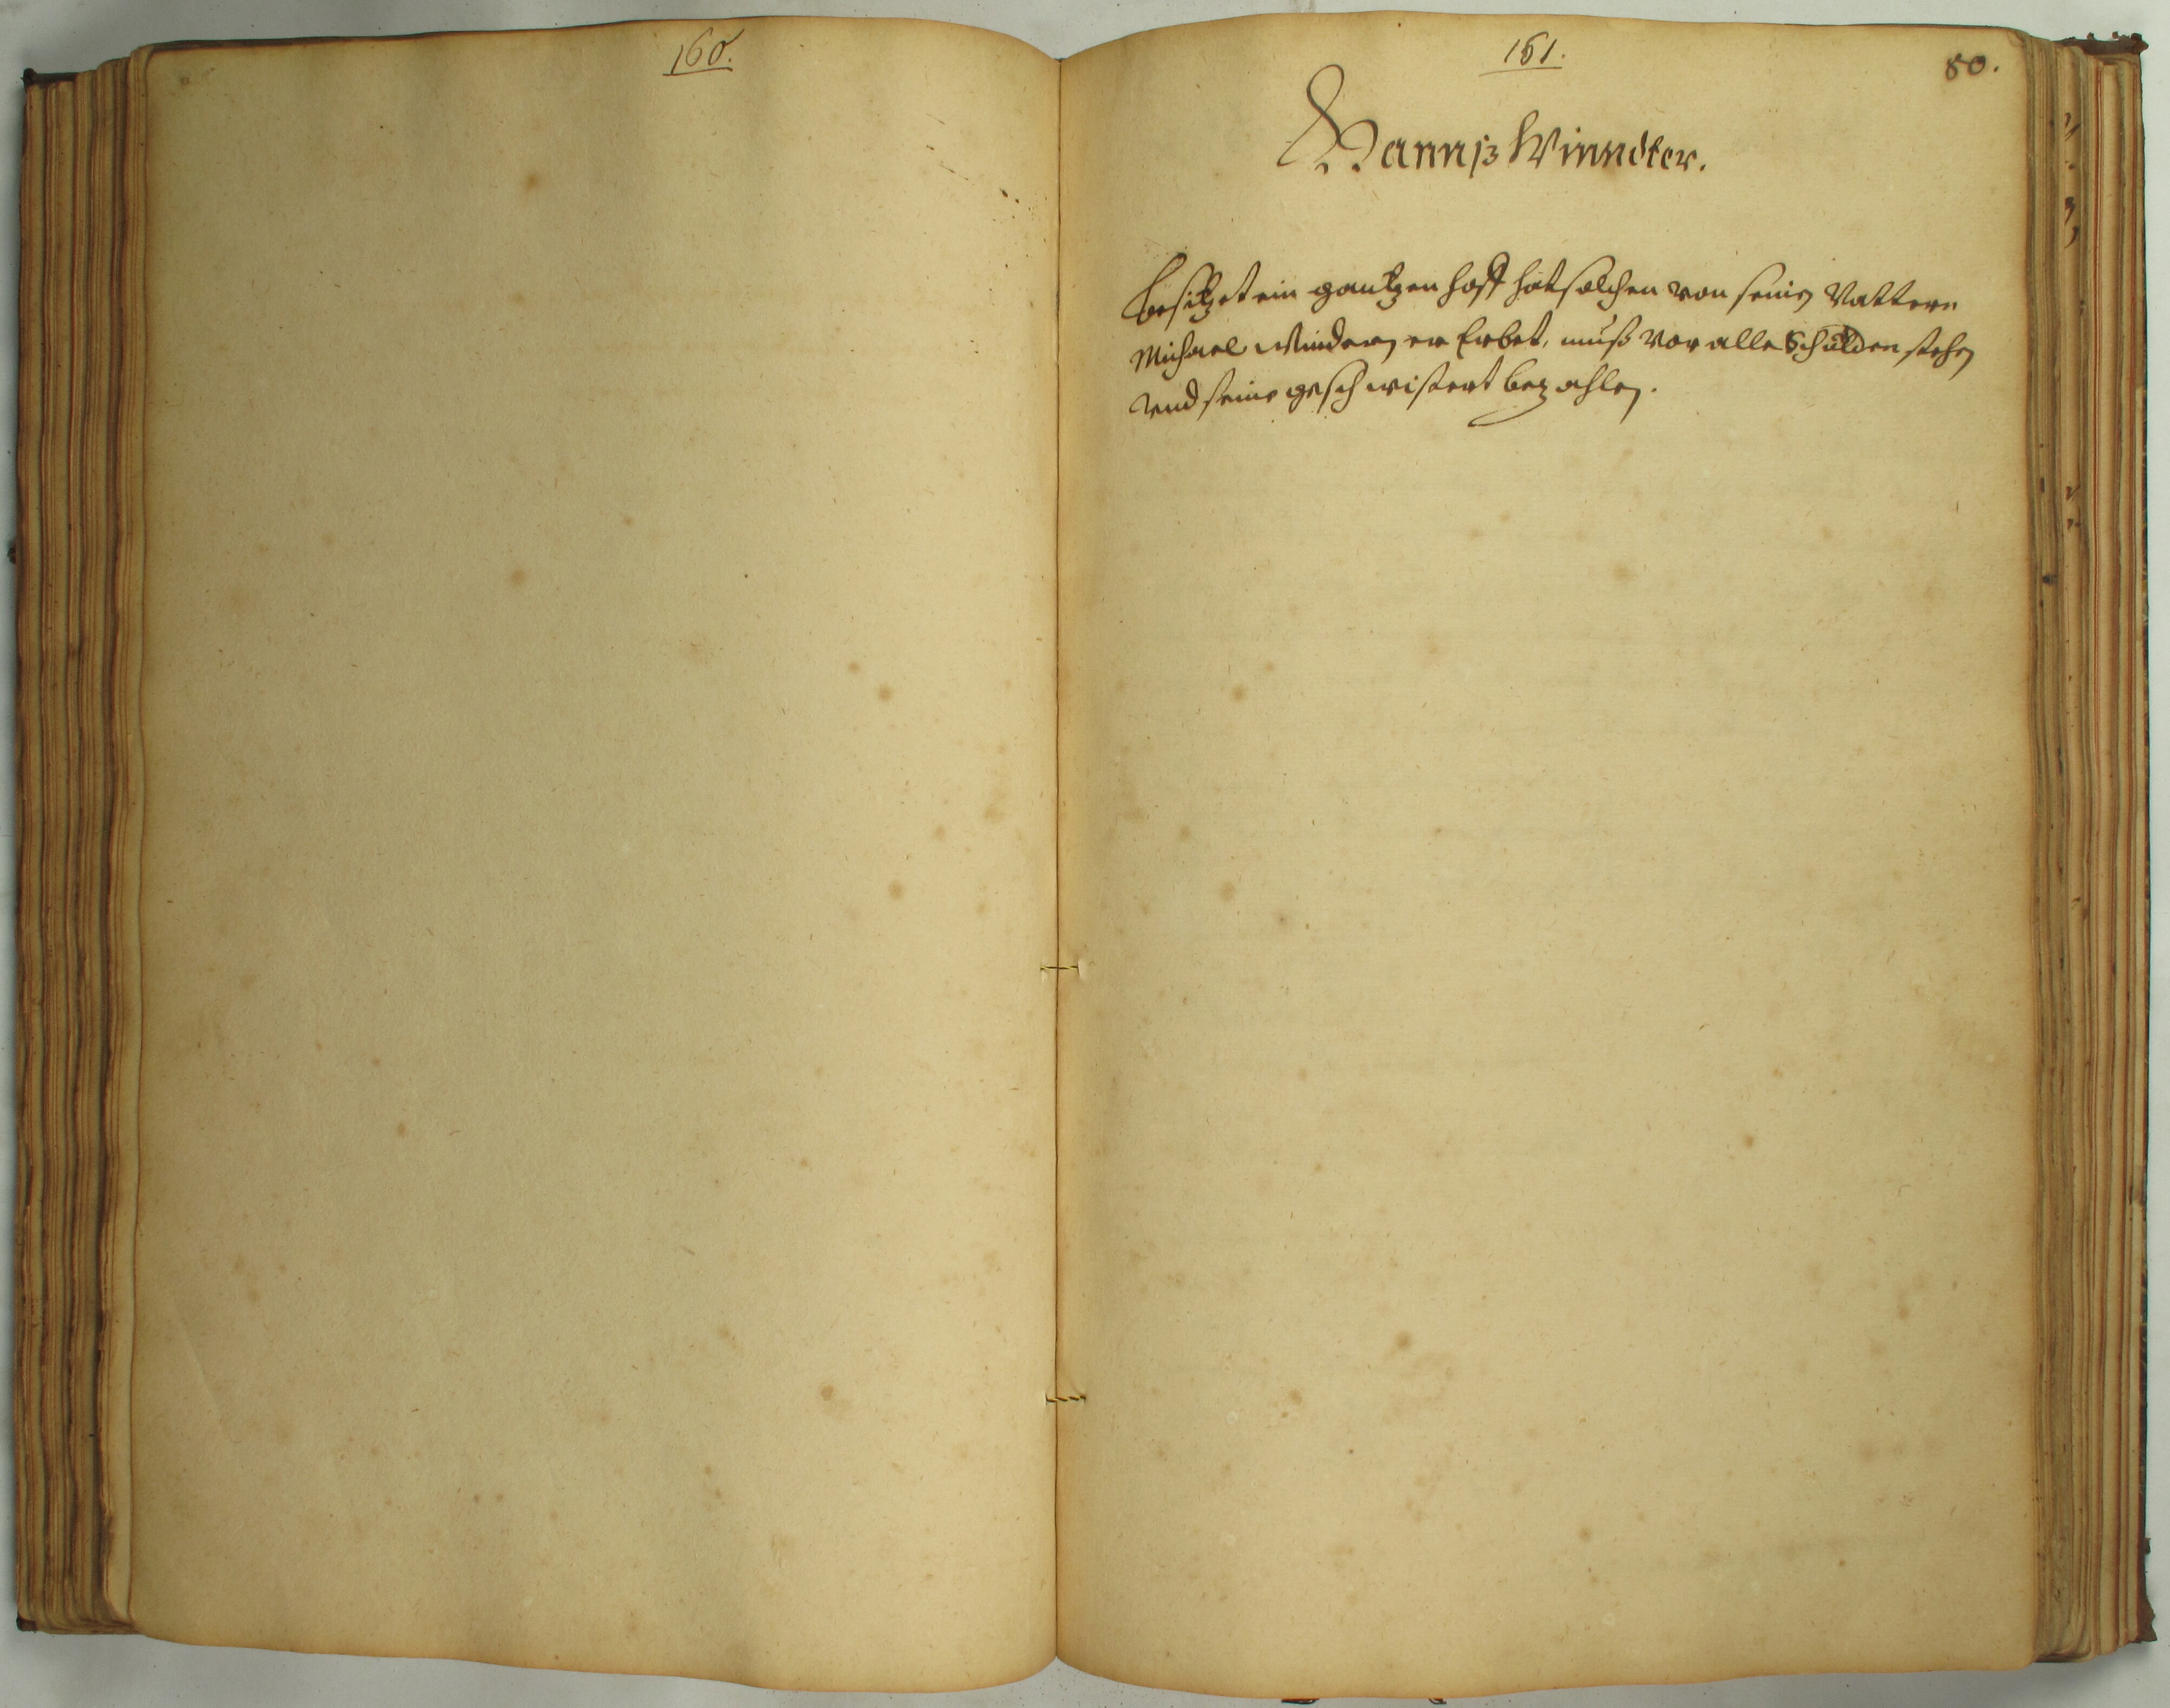 160.
161.
80.
Hannß Winndter.
besitzet ein gantzen hoff hat solchen von seinen Vattern
Michael Windern er Erbet, muß vor alle Schulden stehen
vnd seine geschwistert bezahlen.